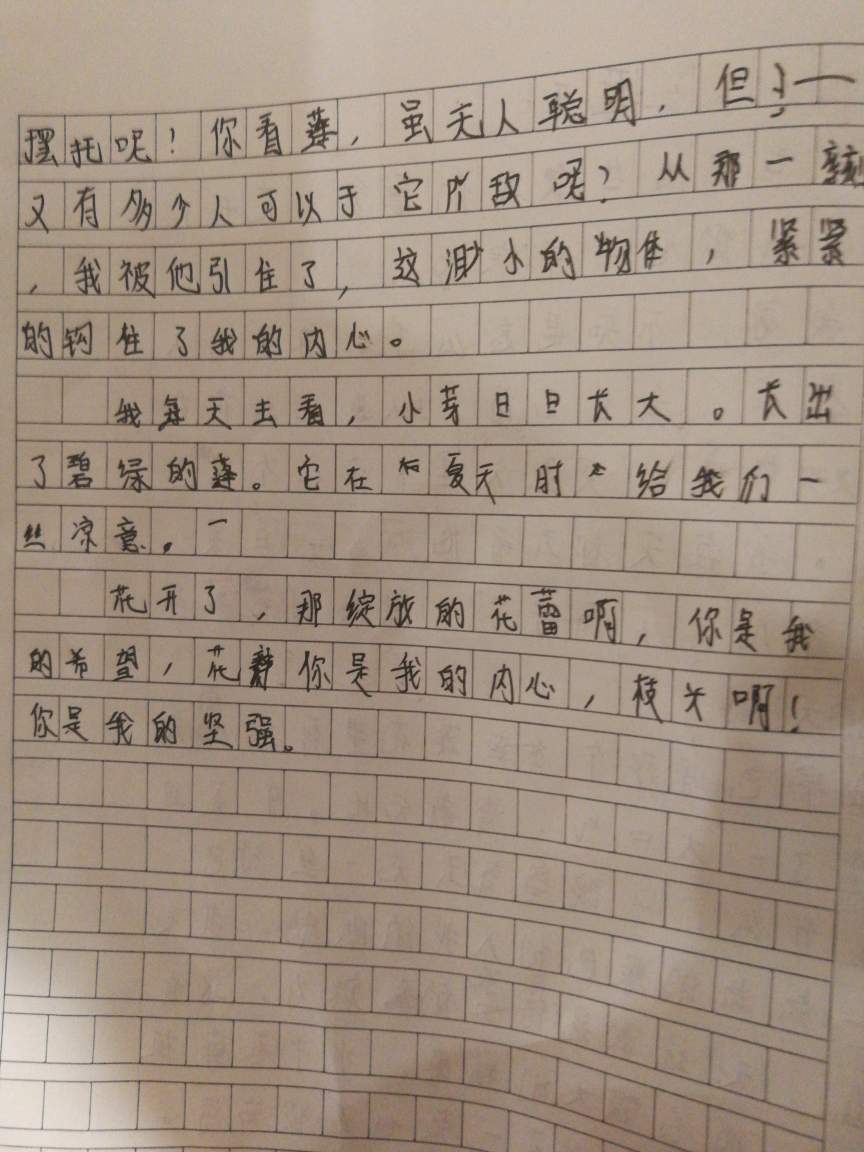 摆托呢！你看莲，虽无人聪明，但——
又有多少人可以于它所敌呢？从那一刻
，我被他引住了，这渺小的物体，紧紧
的钩住了我的内心。
我每天去看，小芽日日长大。长出
了碧绿的莲。它在夏天时给我们一
丝凉意。
花开了，那绽放的花蕾啊，你是我
的希望，花你是我的内心，枝头啊！
你是我的坚强。